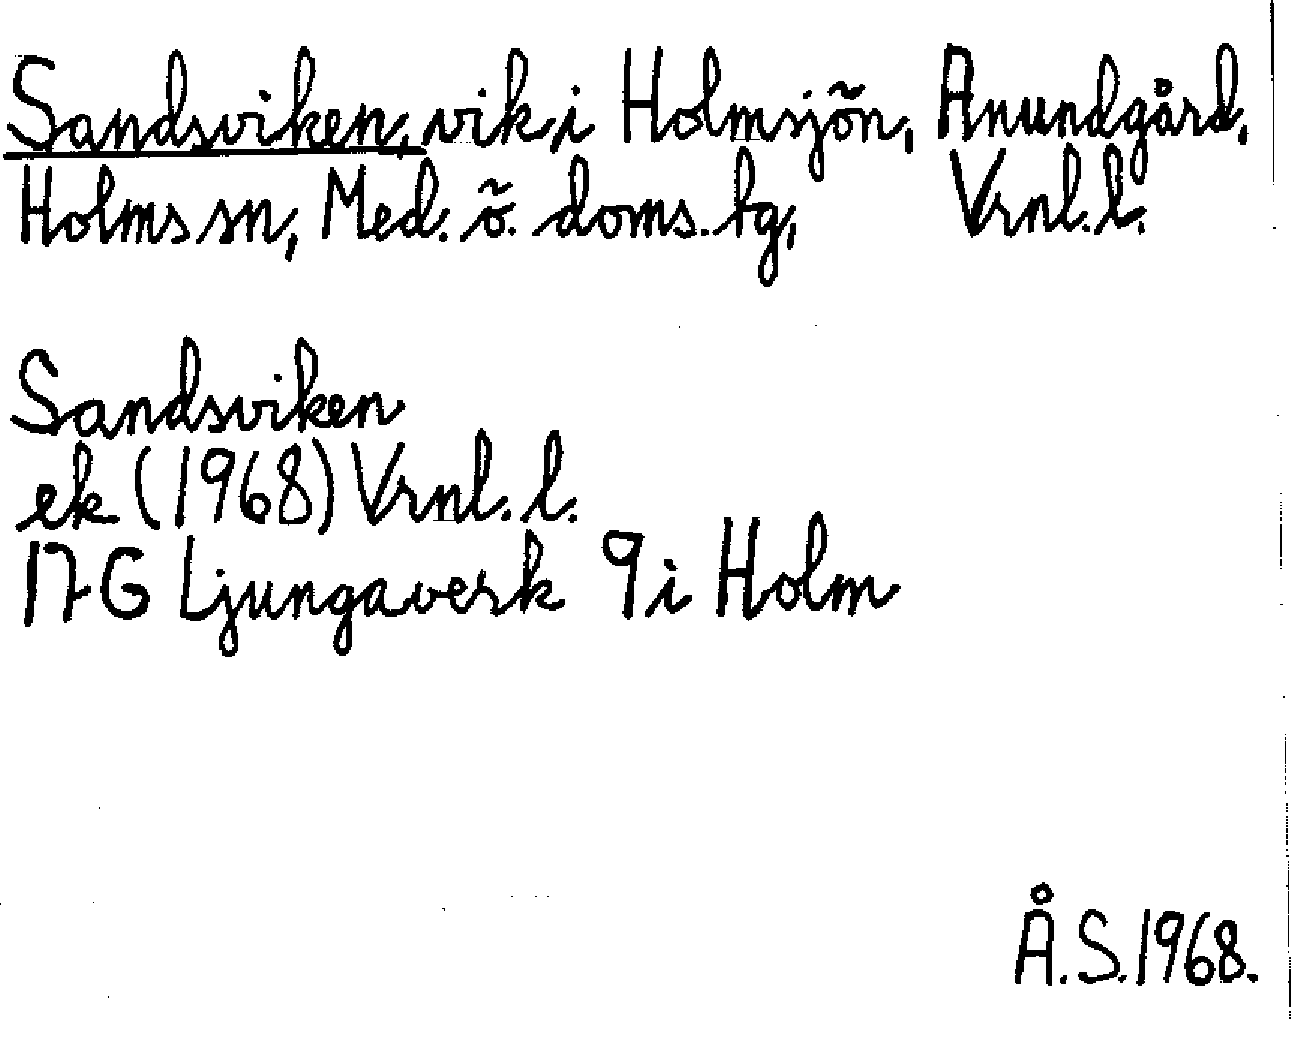 Sandsviken, vik i Holmsjön, Anundgård,
Holms sn, Med. ö. doms. tg, Vrnl. l.
Sandsviken
ek (1968) Vrnl. l.
17 G Ljungaverk 9 i Holm
Å.S. 1968.